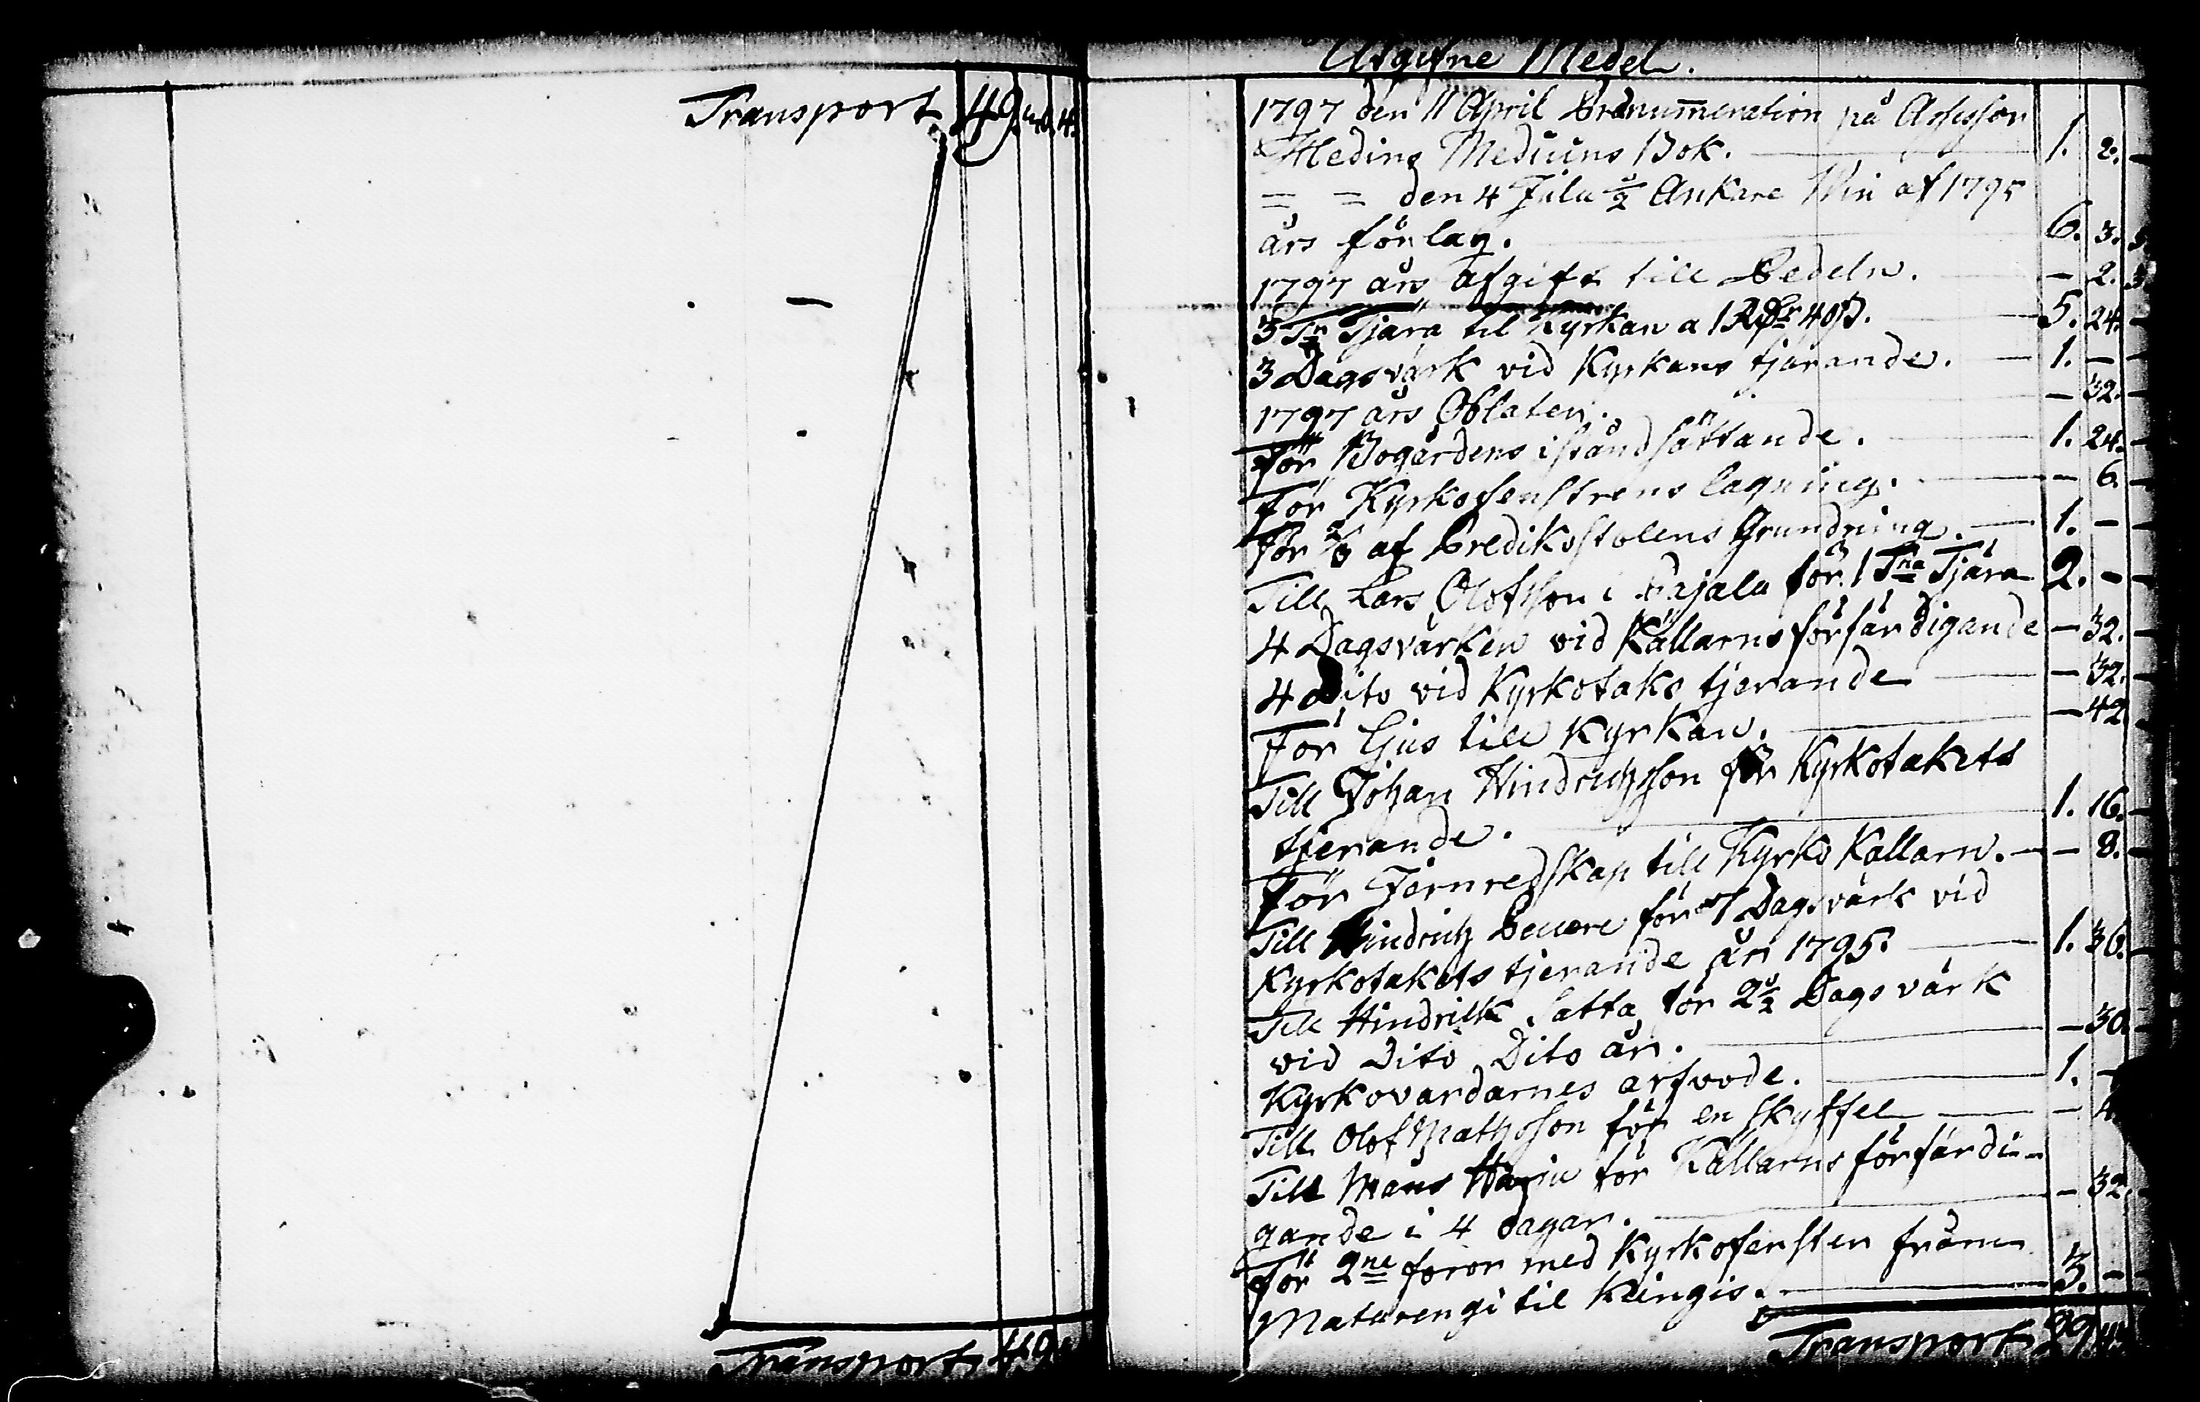 Transport 49. 40. 4.
Transport 49
Utgifne Medel.
1797 den 11 April Prænumeration på Assessor
Hedins Medicins Bok. 1. 2. –
= = den 4 Julu ½ Ankare Vin af 1795
års förlag. 6. 3. 3.
1797 års afgift till Bedeln. – 2. 3.
3 Tr Tjära til Kyrkan a 1 Rdr 40 ß. 5. 24. –
3 Dagsvärk vid Kyrkans tjärande. 1. – –
1797 års Oblater. – 32. –
För Bogårdens iståndsättande. 1. 24. –
För Kyrkofenstrens lagning. – 6. –
För 2/3 af Predikostolens Grundning. 1. – –
Till Lars Olofsson i Pajala för 1 Tna Tjära 2. – –
4 Dagsvärken vid Källarns förfärdigande – 32. –
4 Dito vid Kyrkotaks tjerande – 32. –
För Ljus till Kyrkan. – 42 –
Till Johan Hindrichsson för Kyrkotakets
tjerande. 1. 16. –
För Jernredskap till Kyrko Källarn. – 8. –
Till Hindrich för 7 Dagsvärk vid
Kyrkotakets tjerande år 1795. 1. 36. –
Till Hindrik Satta för 2½ Dagsvärk
vid Dito Dito år. – 30. –
Kyrkovärdarnes arfvode. 1. –
Till Olof Mathsson för en skyffel – 4
Till Måns Harju för Källarns förfärdi-
gande i 4 dagar. – 32. –
För 2ne foror med Kyrkofenster från
Matarengi til Kengis. 3. – –
Transport 29. 4